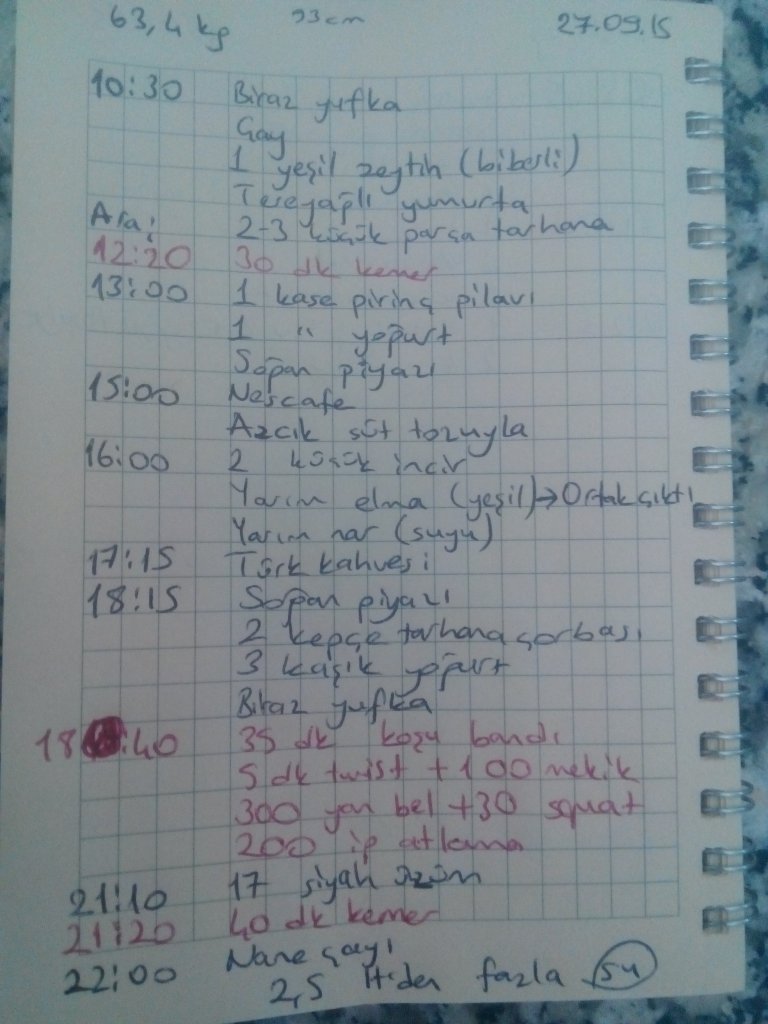 63,4 kg 93cm 27.09.15
10:30 Biraz yufka
Çay
1 yeşil zeytin (biberli)
Tereyağlı yumurta
Ara: 2-3 küçük parça tarhana
12:20 30 dk kemer
13:00 1 kase pirinç pilavı
1 " yoğurt
Soğan piyazı
15:00 Nescafe
Azcık süt tozuyla
16:00 2 küçük incir
Yarım elma (yeşil)→Ortak çıktı
Yarım nar (suyu)
17:15 Türk kahvesi
18:15 Soğan piyazı
2 kepçe tarhana çorbası
3 kaşık yoğurt
Biraz yufka
18:40 35 dk koşu bandı
5 dk twist + 100 mekik
300 yan bel + 30 squat
200 ip atlama
21:10 17 siyah üzüm
21:20 40 dk kemer
22:00 Nane çayı
2,5 lt'den fazla su